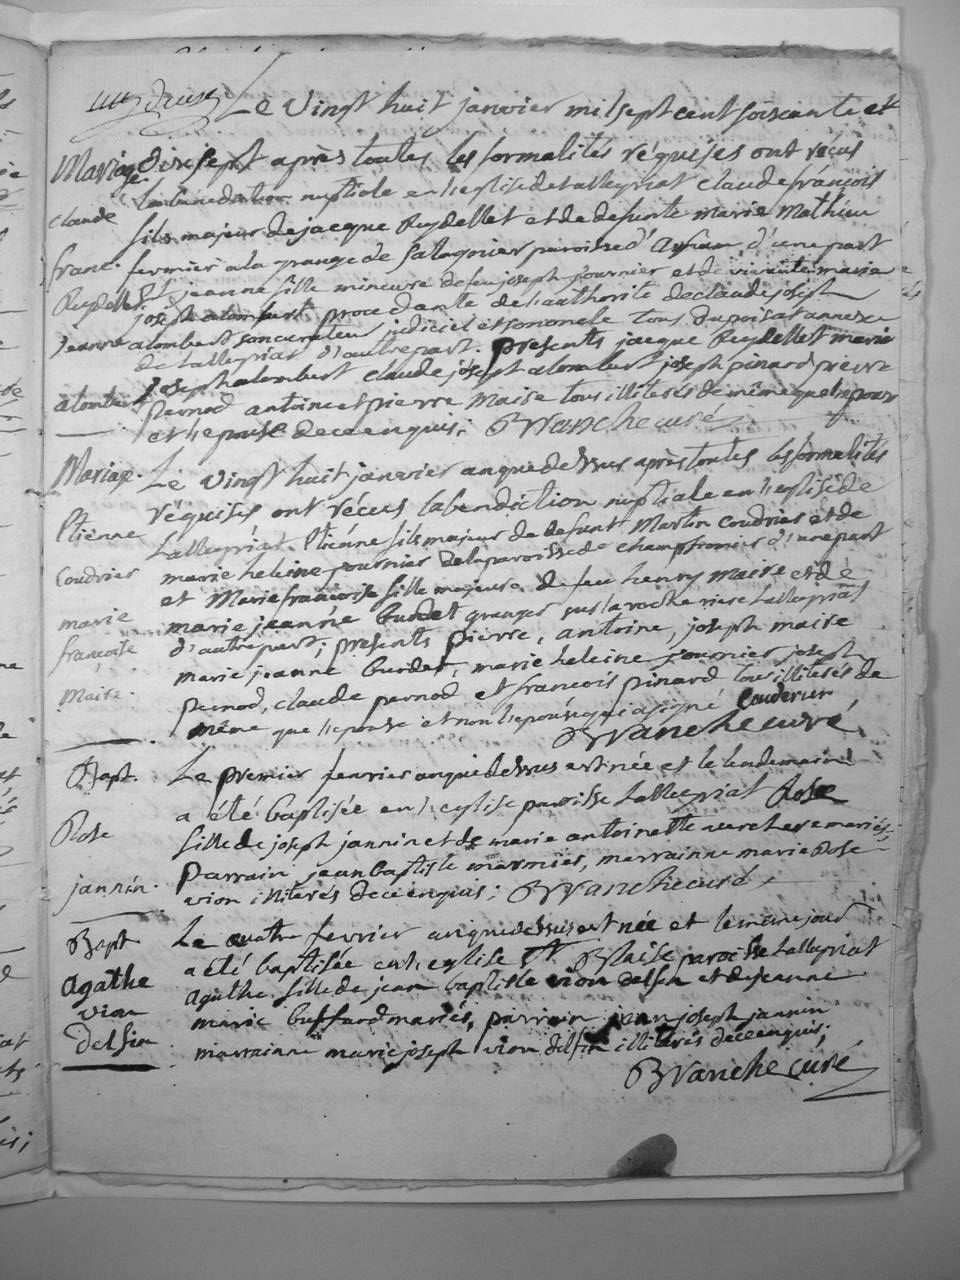 Le vingt huit janvier mil sept cent soixante et
Mariage dix sept après toutes les formalités réquises ont reçus
la bénediction nuptiale en l'eglise de talleyriat claude françois
Claude
fils majeur de jacque Reydellet et de defunte marie Mathieu
franc. fermier a la grange de paroisse d' d'une part
Reydellet et jeanne fille mineure de feu joseph fournier et de vivante marie
joseph alombert procedante de l'authorité de claude joseph
jeanne alombert son curateur judiciel et
de talleyriat d'autre part. presents jacque Reydellet marie
joseph alombert claude joseph alombert joseph pinard pierre
alombert
pernod antoine et pierre Maire tous illiterés de même que l'epoux
et l'epouse de ce enquis; BVranche curé
Mariage. Le vingt huit janvier an que dessus après toutes les formalités
réquises ont récus la bendiction nuptiale en l'eglise de
Etienne
talleyriat Etiénne fils majeur de defunt Martin coudrier et de
Coudrier marie heleine fournier de la paroisse de champfromier d'une part
et Marie françoise fille majeure de feu henry maire et de
marie marie jeanne burdet granger talleyriat
françoise d'autre part; presents pierre, antoine, joseph maire
marie jeanne burdet, marie heleine fournier joseph
Maire. pernod, claude pernod et francois pinard tous illiterés de
même que l'epouse et non l'epoux qui a signé Couderier
BVranche curé
Bapt. Le premier fevrier an que dessus est née et le lendemain
a été baptisée en l'eglise paroisse talleyriat Rose
Rose
fille de joseph jannin et de marie antoinette mariés
parrain jean baptiste marmiés, marrainne marie Rose
jannin. vion illiterés de ce enquis; BVranche curé
Bapt Le quatre fevrier an que dessus est née et le même jour
a été baptisée en l'eglise St. Blaise paroisse talleyriat
Agathe agathe fille de jean baptiste vion delfin et de jeanne
vion marie buffard mariés, parrain jean joseph jannin
delfin marrainne marie joseph vion delfin illiterés de ce enquis;
BVranche curé